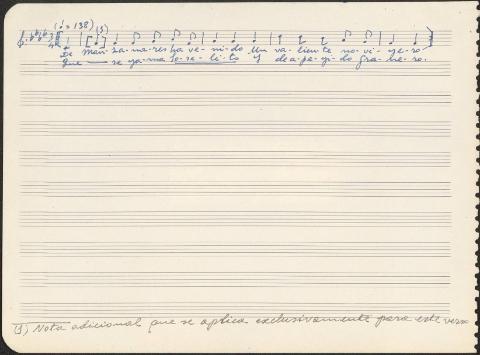 (♩= 138) (3)
De Man-za-na-res ha ve-ni-do Un va-lien te no-vi-ye-ro
Que se ya-ma Jo-se-li-to Y de a-pe-yi-do Gra-ne-ro.
(3) Nota adicional que se aplica exclusivamente para este verso